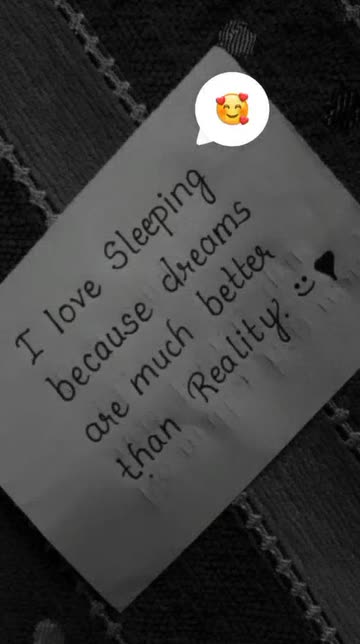 I love Sleeping
because dreams
are much better
than Reality.